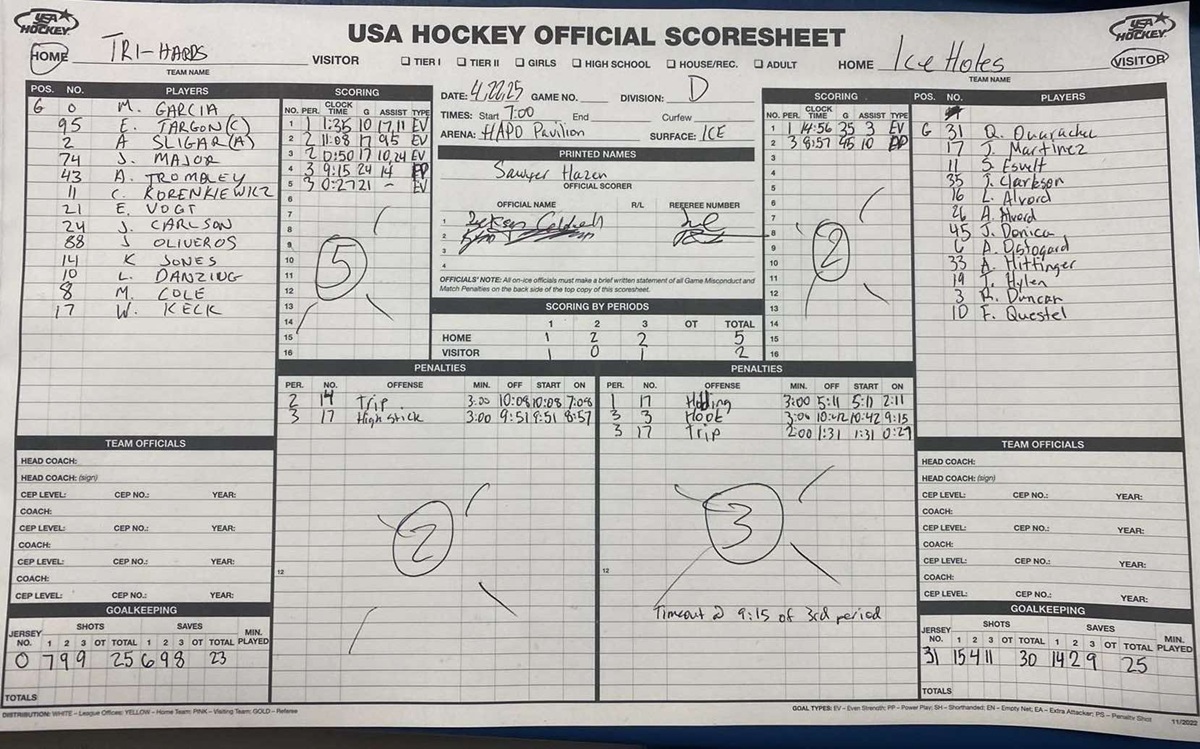 USA HOCKEY
USA HOCKEY OFFICIAL SCORESHEET
USA HOCKEY
HOME TRI-HARDS VISITOR
TEAM NAME
☐ TIER I ☐ TIER II ☐ GIRLS ☐ HIGH SCHOOL ☐ HOUSE/REC. ☐ ADULT
HOME Ice Holes VISITOR
TEAM NAME
POS. NO. PLAYERS
G 0 M. GARCIA
95 E. TARGON (C)
2 A SLIGAR (A)
74 J. MAJOR
43 A. TROMBLEY
11 C. KORENKIEWICZ
21 E. VOGT
24 J. CARLSON
88 J OLIVEROS
14 K JONES
10 L. DANZING
8 M. COLE
17 W. KECK
SCORING
NO. PER. CLOCK TIME G ASSIST TYPE
1 1 1:35 10 17,11 EV
2 2 11:08 17 95 EV
3 2 0:50 17 10,24 EV
4 3 9:15 24 14 PP
5 3 0:27 21 - EV
6
7
8
9
10
11
12
13
14
15
16
5
DATE: 4,22,25 GAME NO. DIVISION: D
TIMES: Start 7:00 End Curfew
ARENA: HAPO Pavilion SURFACE: ICE
PRINTED NAMES
Sawyer Hazen
OFFICIAL SCORER
OFFICIAL NAME R/L REFEREE NUMBER
1
2
3
4
OFFICIALS' NOTE: All on-ice officials must make a brief written statement of all Game Misconduct and
Match Penalties on the back side of the top copy of this scoresheet.
SCORING BY PERIODS
1 2 3 OT TOTAL
HOME 1 2 2 5
VISITOR 1 0 1 2
SCORING
NO. PER. CLOCK TIME G ASSIST TYPE
1 1 14:56 35 3 EV
2 3 8:57 45 10 PP
3
4
5
6
7
8
9
10
11
12
13
14
15
16
2
POS. NO. PLAYERS
G 31 Q.
17 J. Martinez
11 S. Esvelt
35 J. Clarkson
16 L. Alvord
26 A. Alvord
45 J. Donica
6 A.
33 A. Hittinger
19 T. Hylen
3 R. Duncan
10 F. Questel
PENALTIES
PER. NO. OFFENSE MIN. OFF START ON
2 14 Trip 3:00 10:08 10:08 7:08
3 17 High stick 3:00 9:51 9:51 8:57
2
12
PENALTIES
PER. NO. OFFENSE MIN. OFF START ON
1 17 Holding 3:00 5:11 5:11 2:11
3 3 Hook 3:00 10:42 10:42 9:15
3 17 Trip 2:00 1:31 1:31 0:27
3
12
Timeout @ 9:15 of 3rd period
TEAM OFFICIALS
HEAD COACH:
HEAD COACH: (sign)
CEP LEVEL: CEP NO.: YEAR:
COACH:
CEP LEVEL: CEP NO.: YEAR:
COACH:
CEP LEVEL: CEP NO.: YEAR:
COACH:
CEP LEVEL: CEP NO.: YEAR:
GOALKEEPING
JERSEY NO. SHOTS SAVES MIN. PLAYED
1 2 3 OT TOTAL 1 2 3 OT TOTAL
0 7 9 9 25 6 9 8 23
TOTALS
TEAM OFFICIALS
HEAD COACH:
HEAD COACH: (sign)
CEP LEVEL: CEP NO.: YEAR:
COACH:
CEP LEVEL: CEP NO.: YEAR:
COACH:
CEP LEVEL: CEP NO.: YEAR:
COACH:
CEP LEVEL: CEP NO.: YEAR:
GOALKEEPING
JERSEY NO. SHOTS SAVES MIN. PLAYED
1 2 3 OT TOTAL 1 2 3 OT TOTAL
31 15 4 11 30 14 2 9 25
TOTALS
DISTRIBUTION: WHITE – League Offices: YELLOW – Home Team: PINK – Visiting Team: GOLD – Referee
GOAL TYPES: EV – Even Strength; PP – Power Play; SH – Shorthanded; EN – Empty Net; EA – Extra Attacker; PS – Penalty Shot 11/2022